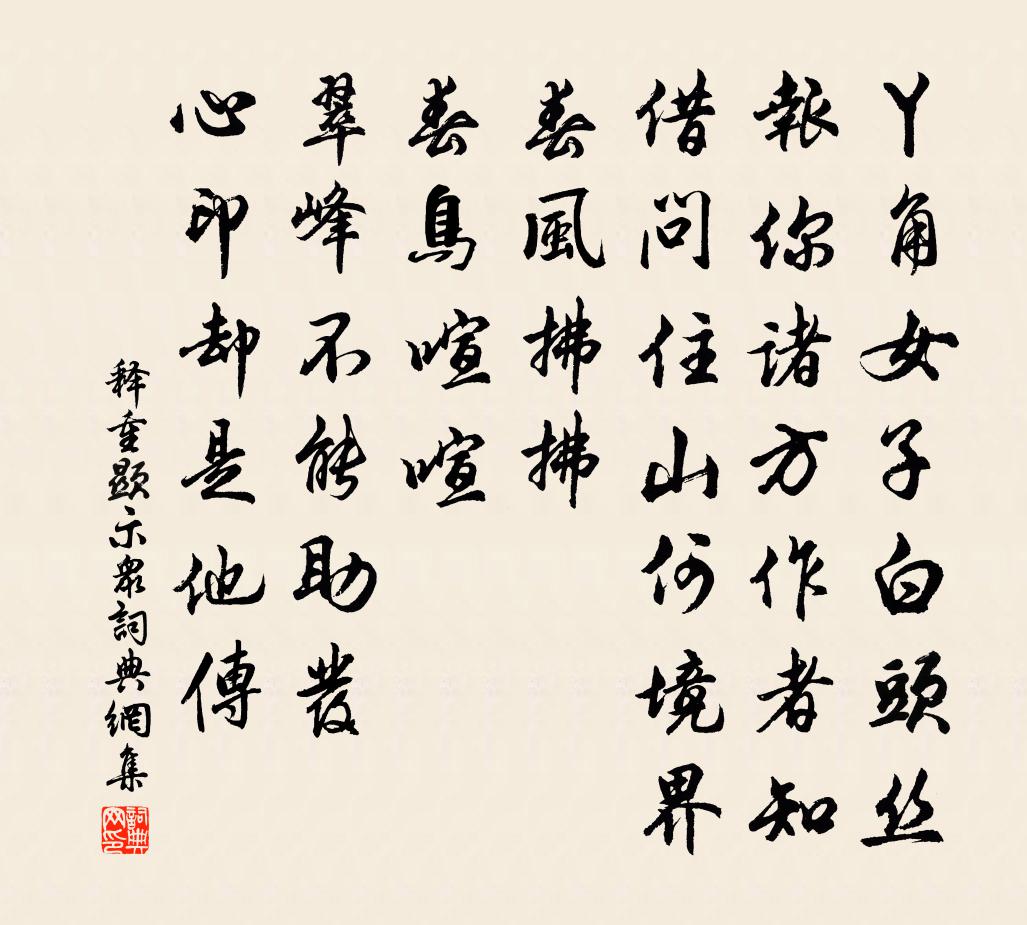 丫角女子白頭丝
報你诸方作者知
借問住山何境界
春風拂拂
春鳥喧喧
翠峰不能助發
心印却是他傳
释重顯示衆詞典網集
詞典网印